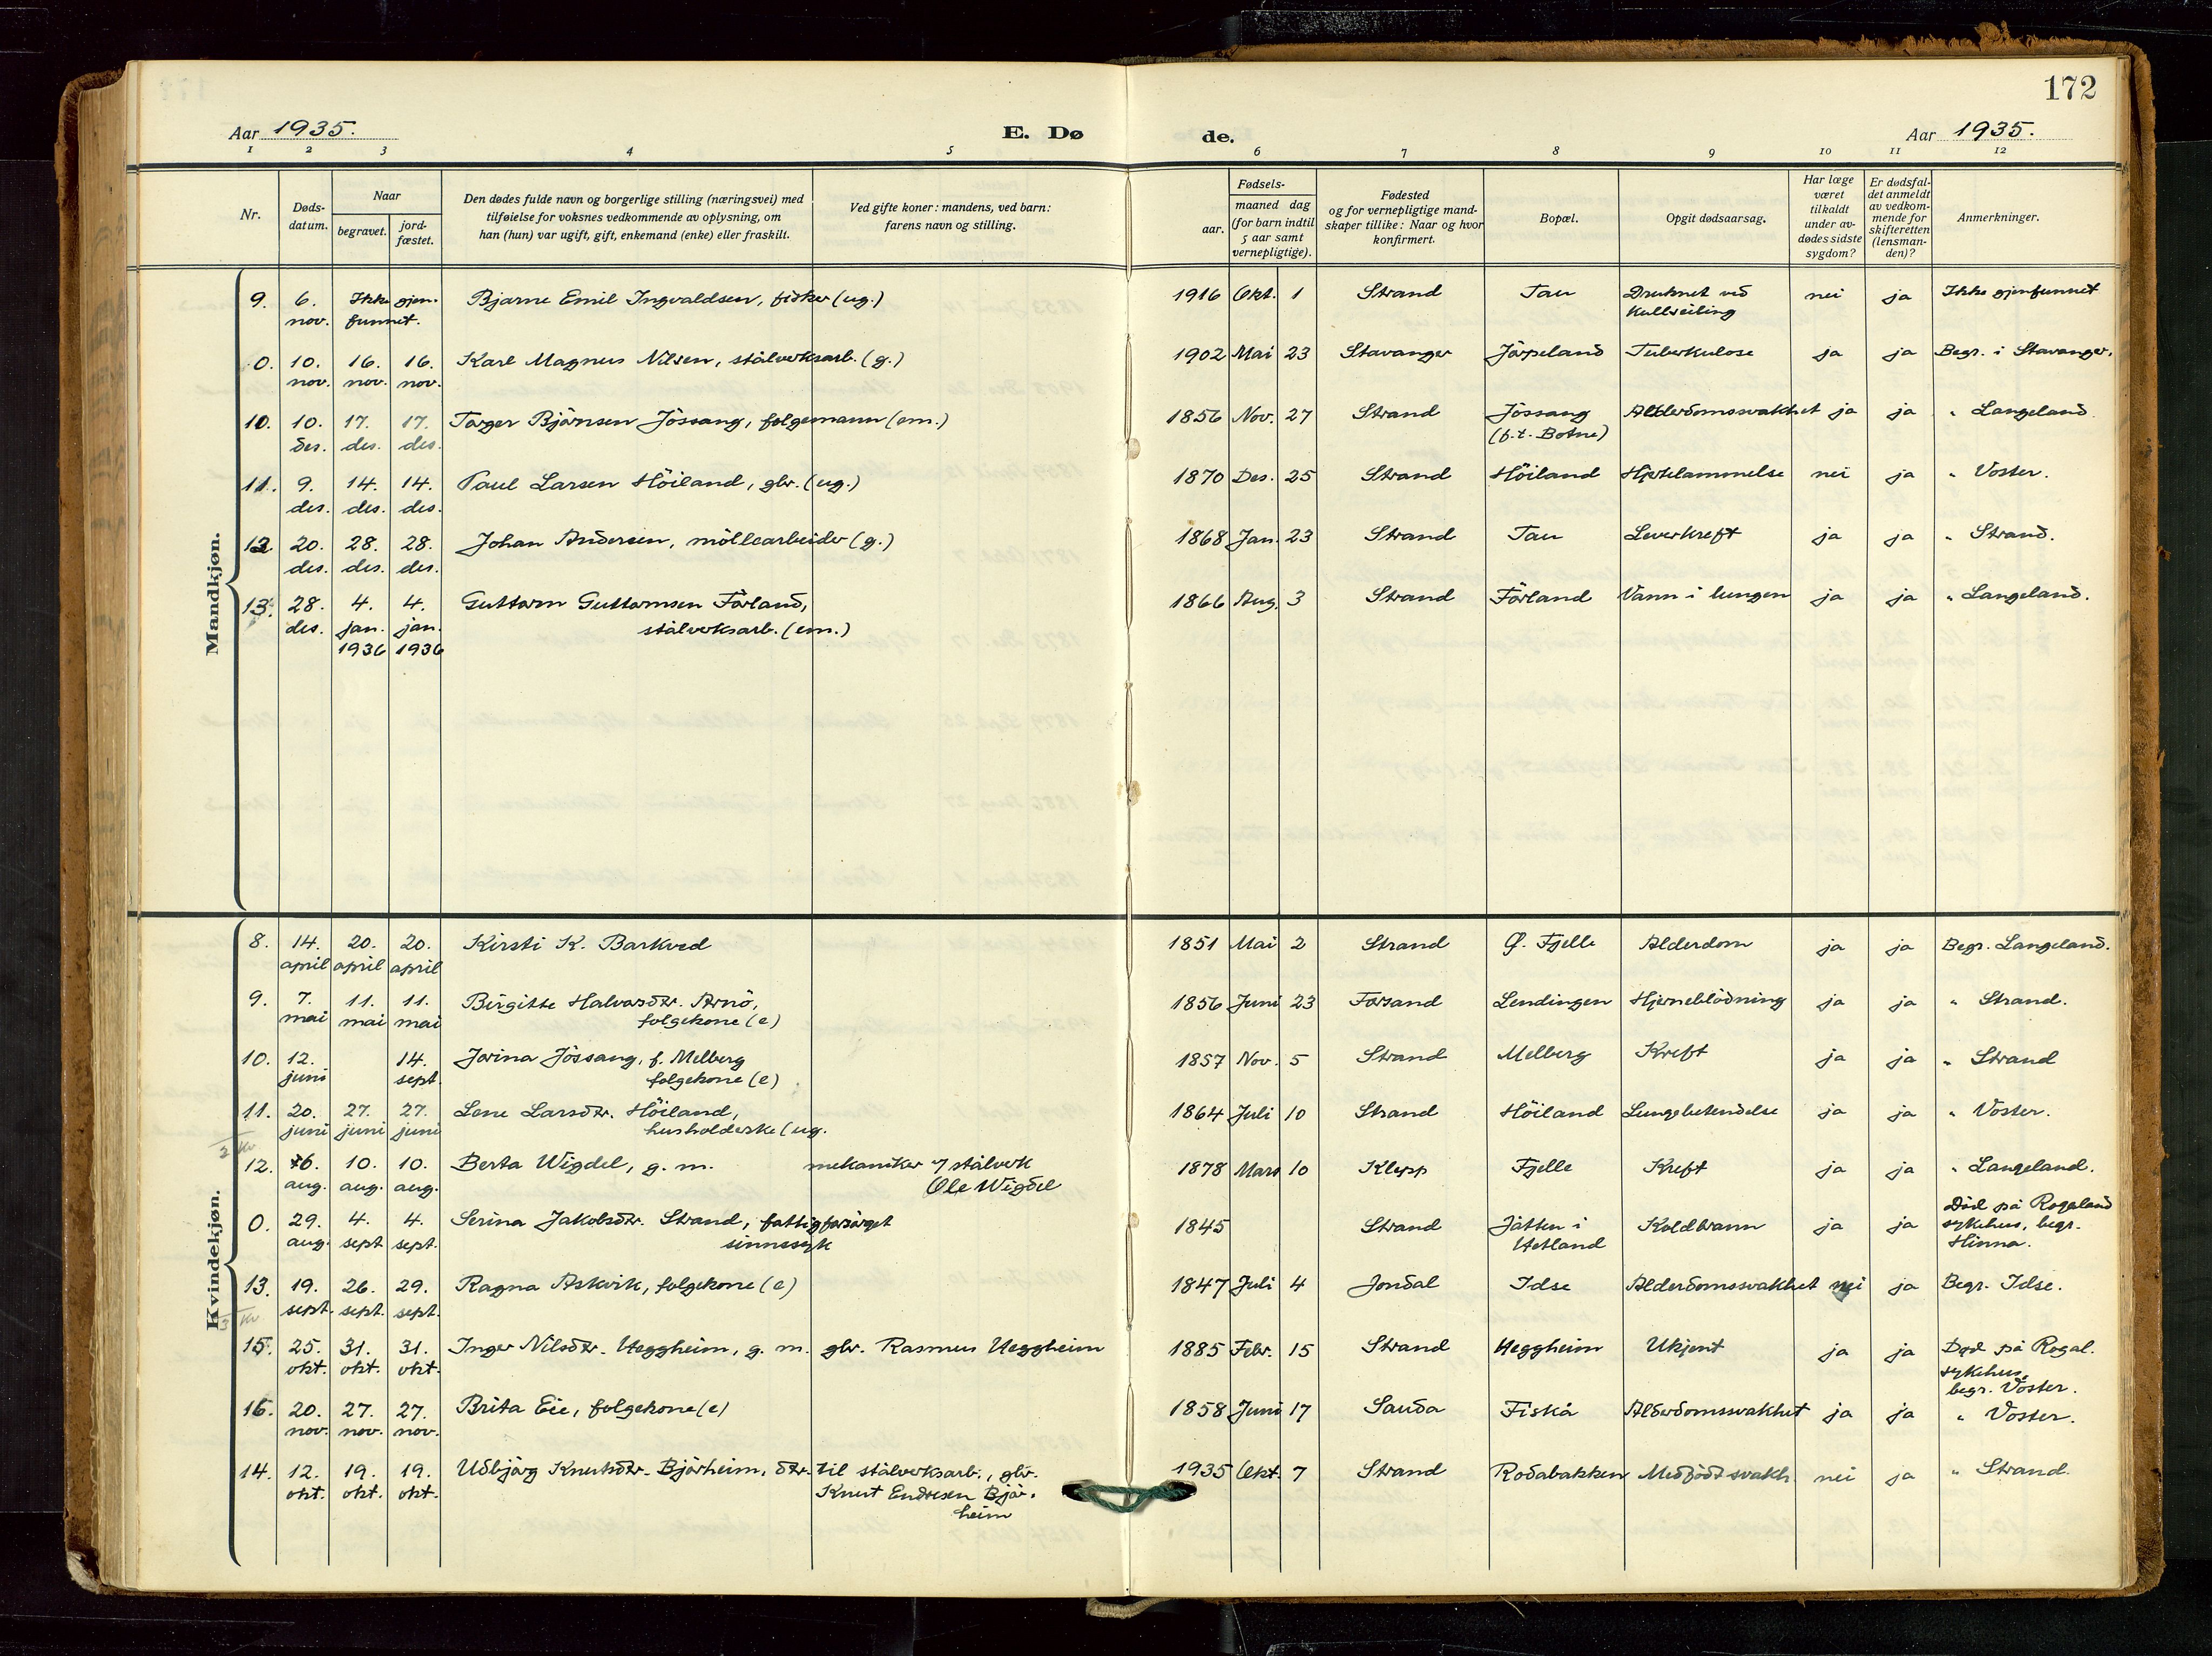 172
Aar 1935.
E. Dø
de.
Aar 1935.
1 2 3 4 5 6 7 8 9 10 11 12
Nr.
Døds-
datum.
Naar
begravet.
jord-
fæstet.
Den dødes fulde navn og borgerlige stilling (næringsvei) med
tilføielse for voksnes vedkommende av oplysning, om
han (hun) var ugift, gift, enkemand (enke) eller fraskilt.
Ved gifte koner: mandens, ved barn:
farens navn og stilling.
Fødsels-
aar.
maaned dag
(for barn indtil
5 aar samt
vernepligtige).
Fødested
og for vernepligtige mand-
skaper tillike: Naar og hvor
konfirmert.
Bopæl.
Opgit dødsaarsag.
Har læge
været
tilkaldt
under av-
dødes sidste
sygdom?
Er dødsfal-
det anmeldt
av vedkom-
mende for
skifteretten
(lensman-
den)?
Anmerkninger.
Mandkjøn.
9. 6. Ikke gjen- Bjarne Emil Ingvaldsen, fisker (ug.) 1916 Okt. 1 Strand Tau Druknet ved nei ja Ikke gjenfunnet
nov. funnet. Kullseiling
0. 10. 16. 16. Karl Magnus Nilsen, stålverksarb. (g.) 1902 Mai 23 Stavanger Jörpeland Tuberkulose ja ja Begr. i Stavanger.
nov. nov. nov.
10. 10. 17. 17. Torger Björnsen Jössang, folgemann (em.) 1856 Nov. 27 Strand Jössang Alderdomssvakhet ja ja " Langeland.
des. des. des. (f.t. Botne)
11. 9. 14. 14. Paul Larsen Höiland, gbr. (ug.) 1870 Des. 25 Strand Höiland Hjertelammelse nei ja " Voster.
des. des. des.
12. 20. 28. 28. Johan Andersen, möllearbeider (g.) 1868 Jan. 23 Strand Tau Leverkreft ja ja " Strand.
des. des. des.
13. 28. 4. 4. Guttorm Guttormsen Förland, 1866 Aug. 3 Strand Förland Vann i lungen ja ja " Langeland.
des. jan. jan. stålverksarb. (em.)
1936 1936
Kvindekjøn.
8. 14. 20. 20. Kirsti K. Barkved 1851 Mai 2 Strand Ø. Fjelle Alderdom ja ja Begr. Langeland.
april april april
9. 7. 11. 11. Birgitte Halvorsdtr. Arnö, 1856 Juni 23 Forsand Lendingen Hjerneblödning ja ja " Strand.
mai mai mai folgekone (e)
10. 12. 14. Jorina Jössang, f. Melberg 1857 Nov. 5 Strand Melberg Kreft ja ja " Strand
juni sept. folgekone (e)
11. 20. 27. 27. Lene Larsdtr. Höiland, 1864 Juli 10 Strand Höiland Lungebetendelse ja ja " Voster.
juni juni juni husholderske (ug.
2 Kv
12. 6. 10. 10. Berta Wigdel, g. m. mekaniker v/ stålverk 1878 Mars 10 Klepp Fjelle Kreft ja ja " Langeland.
aug. aug. aug. Ole Wigdel
0. 29. 4. 4. Serina Jakobsdtr. Strand, fattigforsörget 1845 Strand Jåtten i Koldbrann ja ja Död på Rogaland
aug. sept sept. sinnssyk Hetland sykehus, begr.
Hinna.
13. 19. 26. 29. Ragna Askvik, folgekone (e) 1847 Juli 4 Jondal Idse Alderdomssvakhet nei ja Begr. Idse.
sept. sept. sept.
3 Kv
15. 25. 31. 31. Inger Nilsdtr. Heggheim, g. m. gbr. Rasmus Heggheim 1885 Febr. 15 Strand Heggheim Ukjent ja ja Död på Rogal.
okt. okt. okt. sykehus,
begr. Voster.
16. 20. 27. 27. Brita Eie, folgekone (e) 1858 Juni 17 Sauda Fiskå Alderdomssvakhet ja ja " Voster.
nov. nov. nov.
14. 12. 19. 19. Udbjörg Knutsdtr. Björheim, dtr. til stålverksarb., gbr. 1935 Okt. 7 Strand Rodabakken Medfödt svakh. nei ja " Strand.
okt. okt. okt. Knut Endresen Björ-
heim